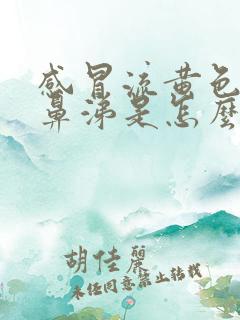 感冒流黄色
鼻涕是怎麼
胡佳麗
未经同意禁止转载